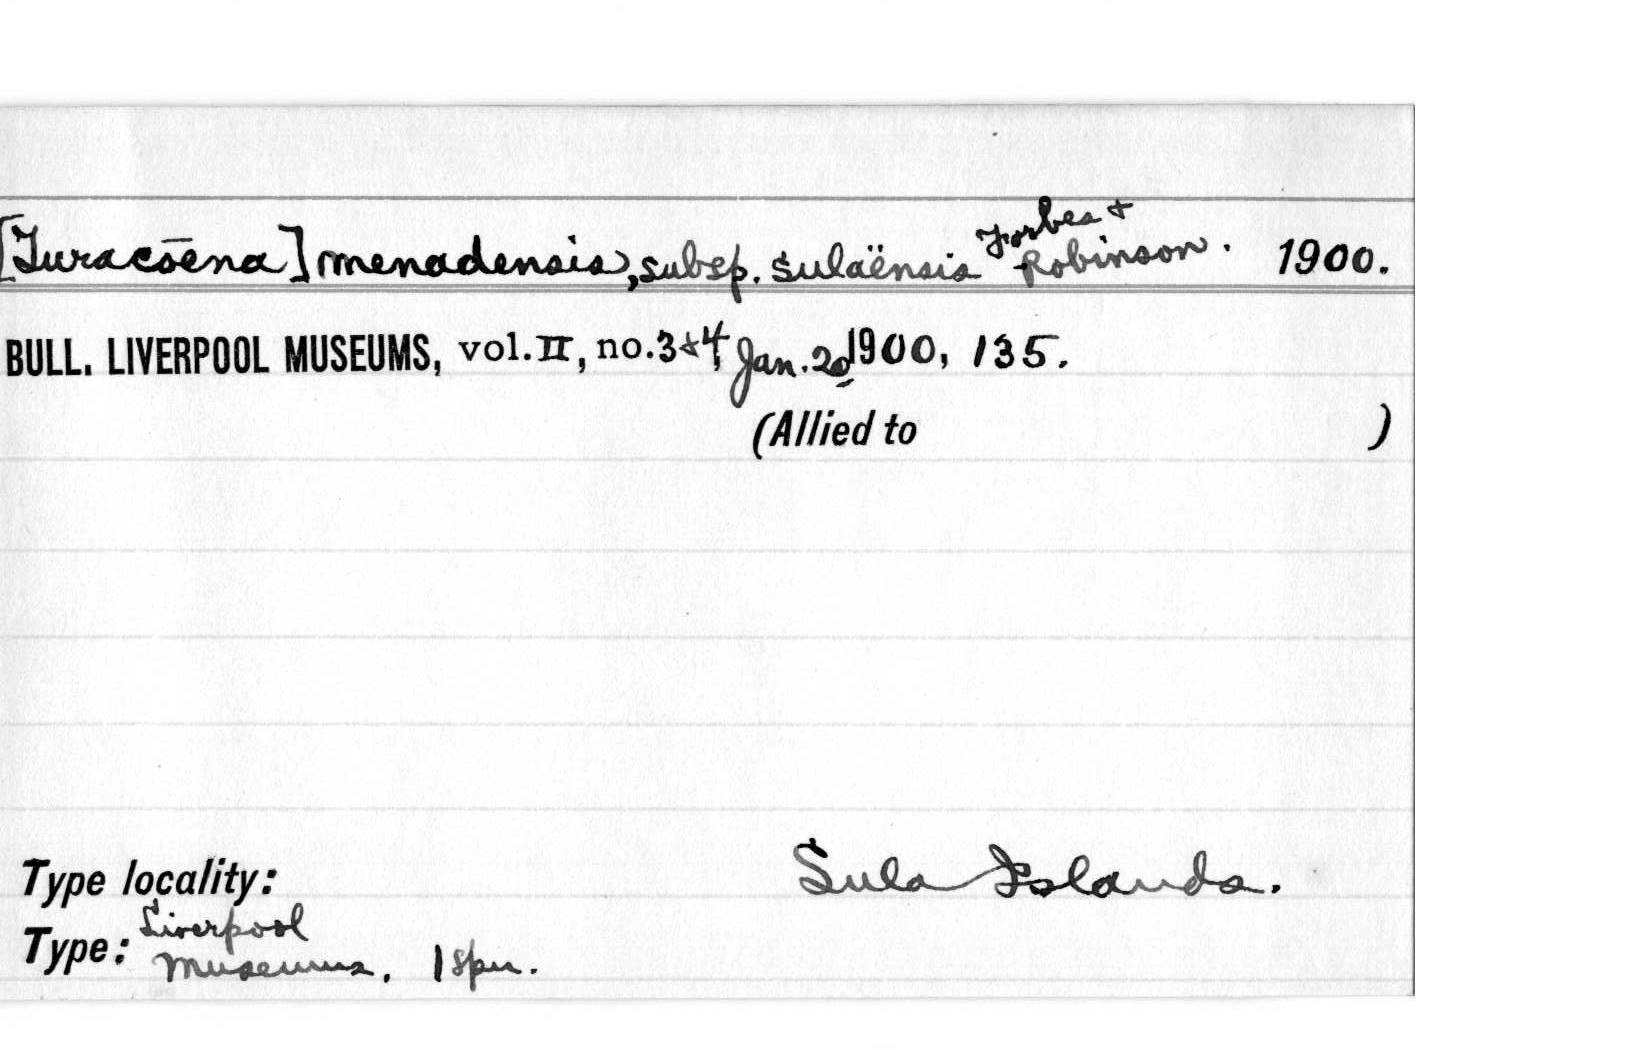 [Turacōena] menadensis, subsp. sulaënsis Forbes & Robinson. 1900.
BULL. LIVERPOOL MUSEUMS, vol. II, no. 3 & 4, Jan. 20 1900, 135.
(Allied to )
Type locality: Sula Islands.
Type: Liverpool Museums, 1 spn.